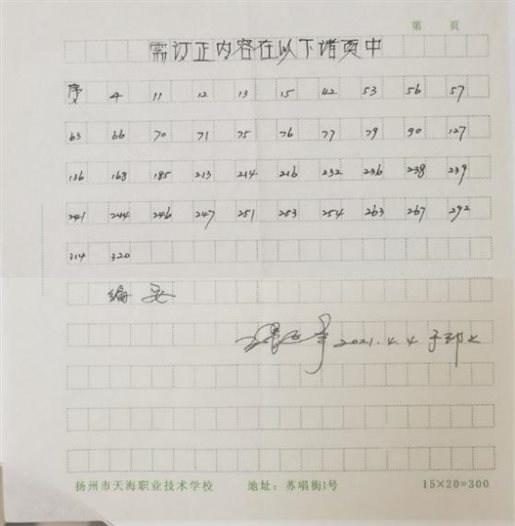 第 页
需订正内容在以下诸页中
序 4 11 12 13 15 42 53 56 57
63 66 70 71 75 76 77 79 90 127
136 168 185 213 214 216 232 236 238 239
241 244 246 247 251 253 254 263 267 292
314 320
编委
2021.4.4
扬州市天海职业技术学校 地址：苏唱街1号 15×20=300